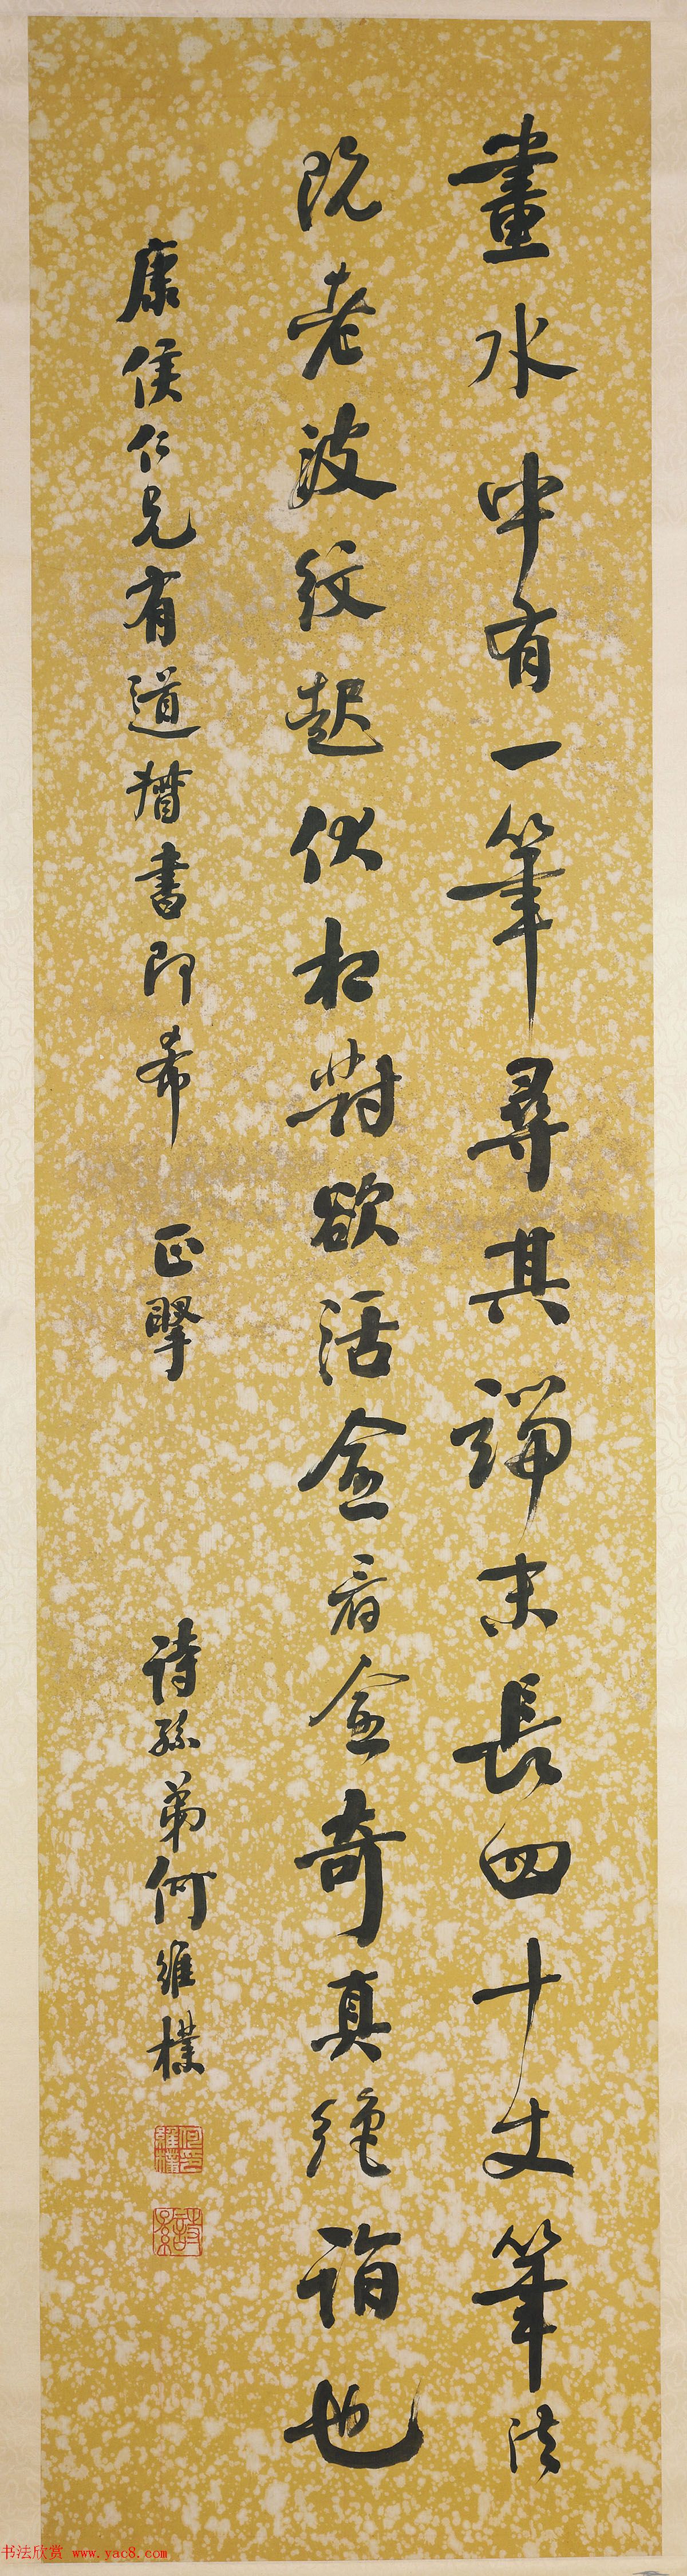 畫水中有一筆尋其端末長四十丈筆法
既老波紋起伏相對欲活愈看愈奇真絕詣也
康侯仁兄有道書即希 正掔
詩孫弟何維樸
何維樸印
詩孫
书法欣赏 www.yac8.com